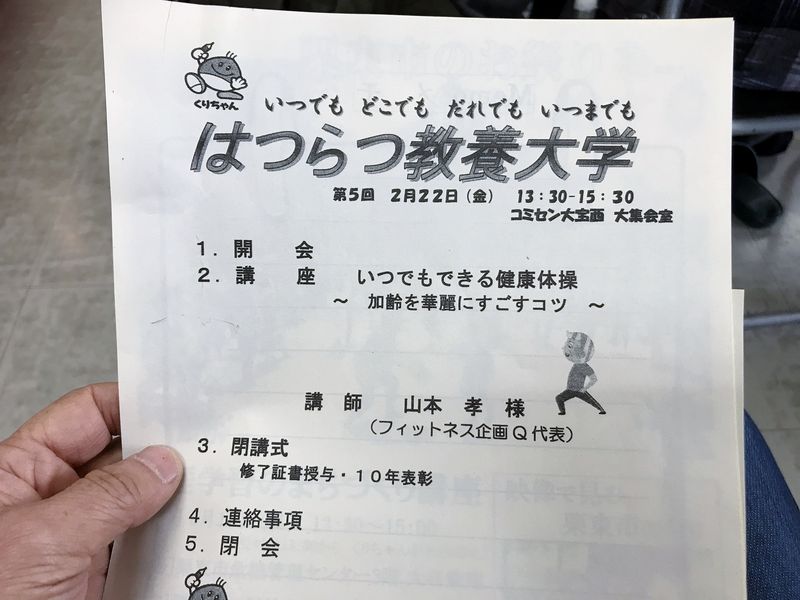 くりちゃん
いつでも どこでも だれでも いつまでも
はつらつ教養大学
第5回 2月22日(金) 13:30-15:30
コミセン大宝西 大集会室
1. 開 会
2. 講 座 いつでもできる健康体操
~ 加齢を華麗にすごすコツ ~
講 師 山本 孝 様
(フィットネス企画Q代表)
3. 閉講式
修了証書授与・10年表彰
4. 連絡事項
5. 閉 会